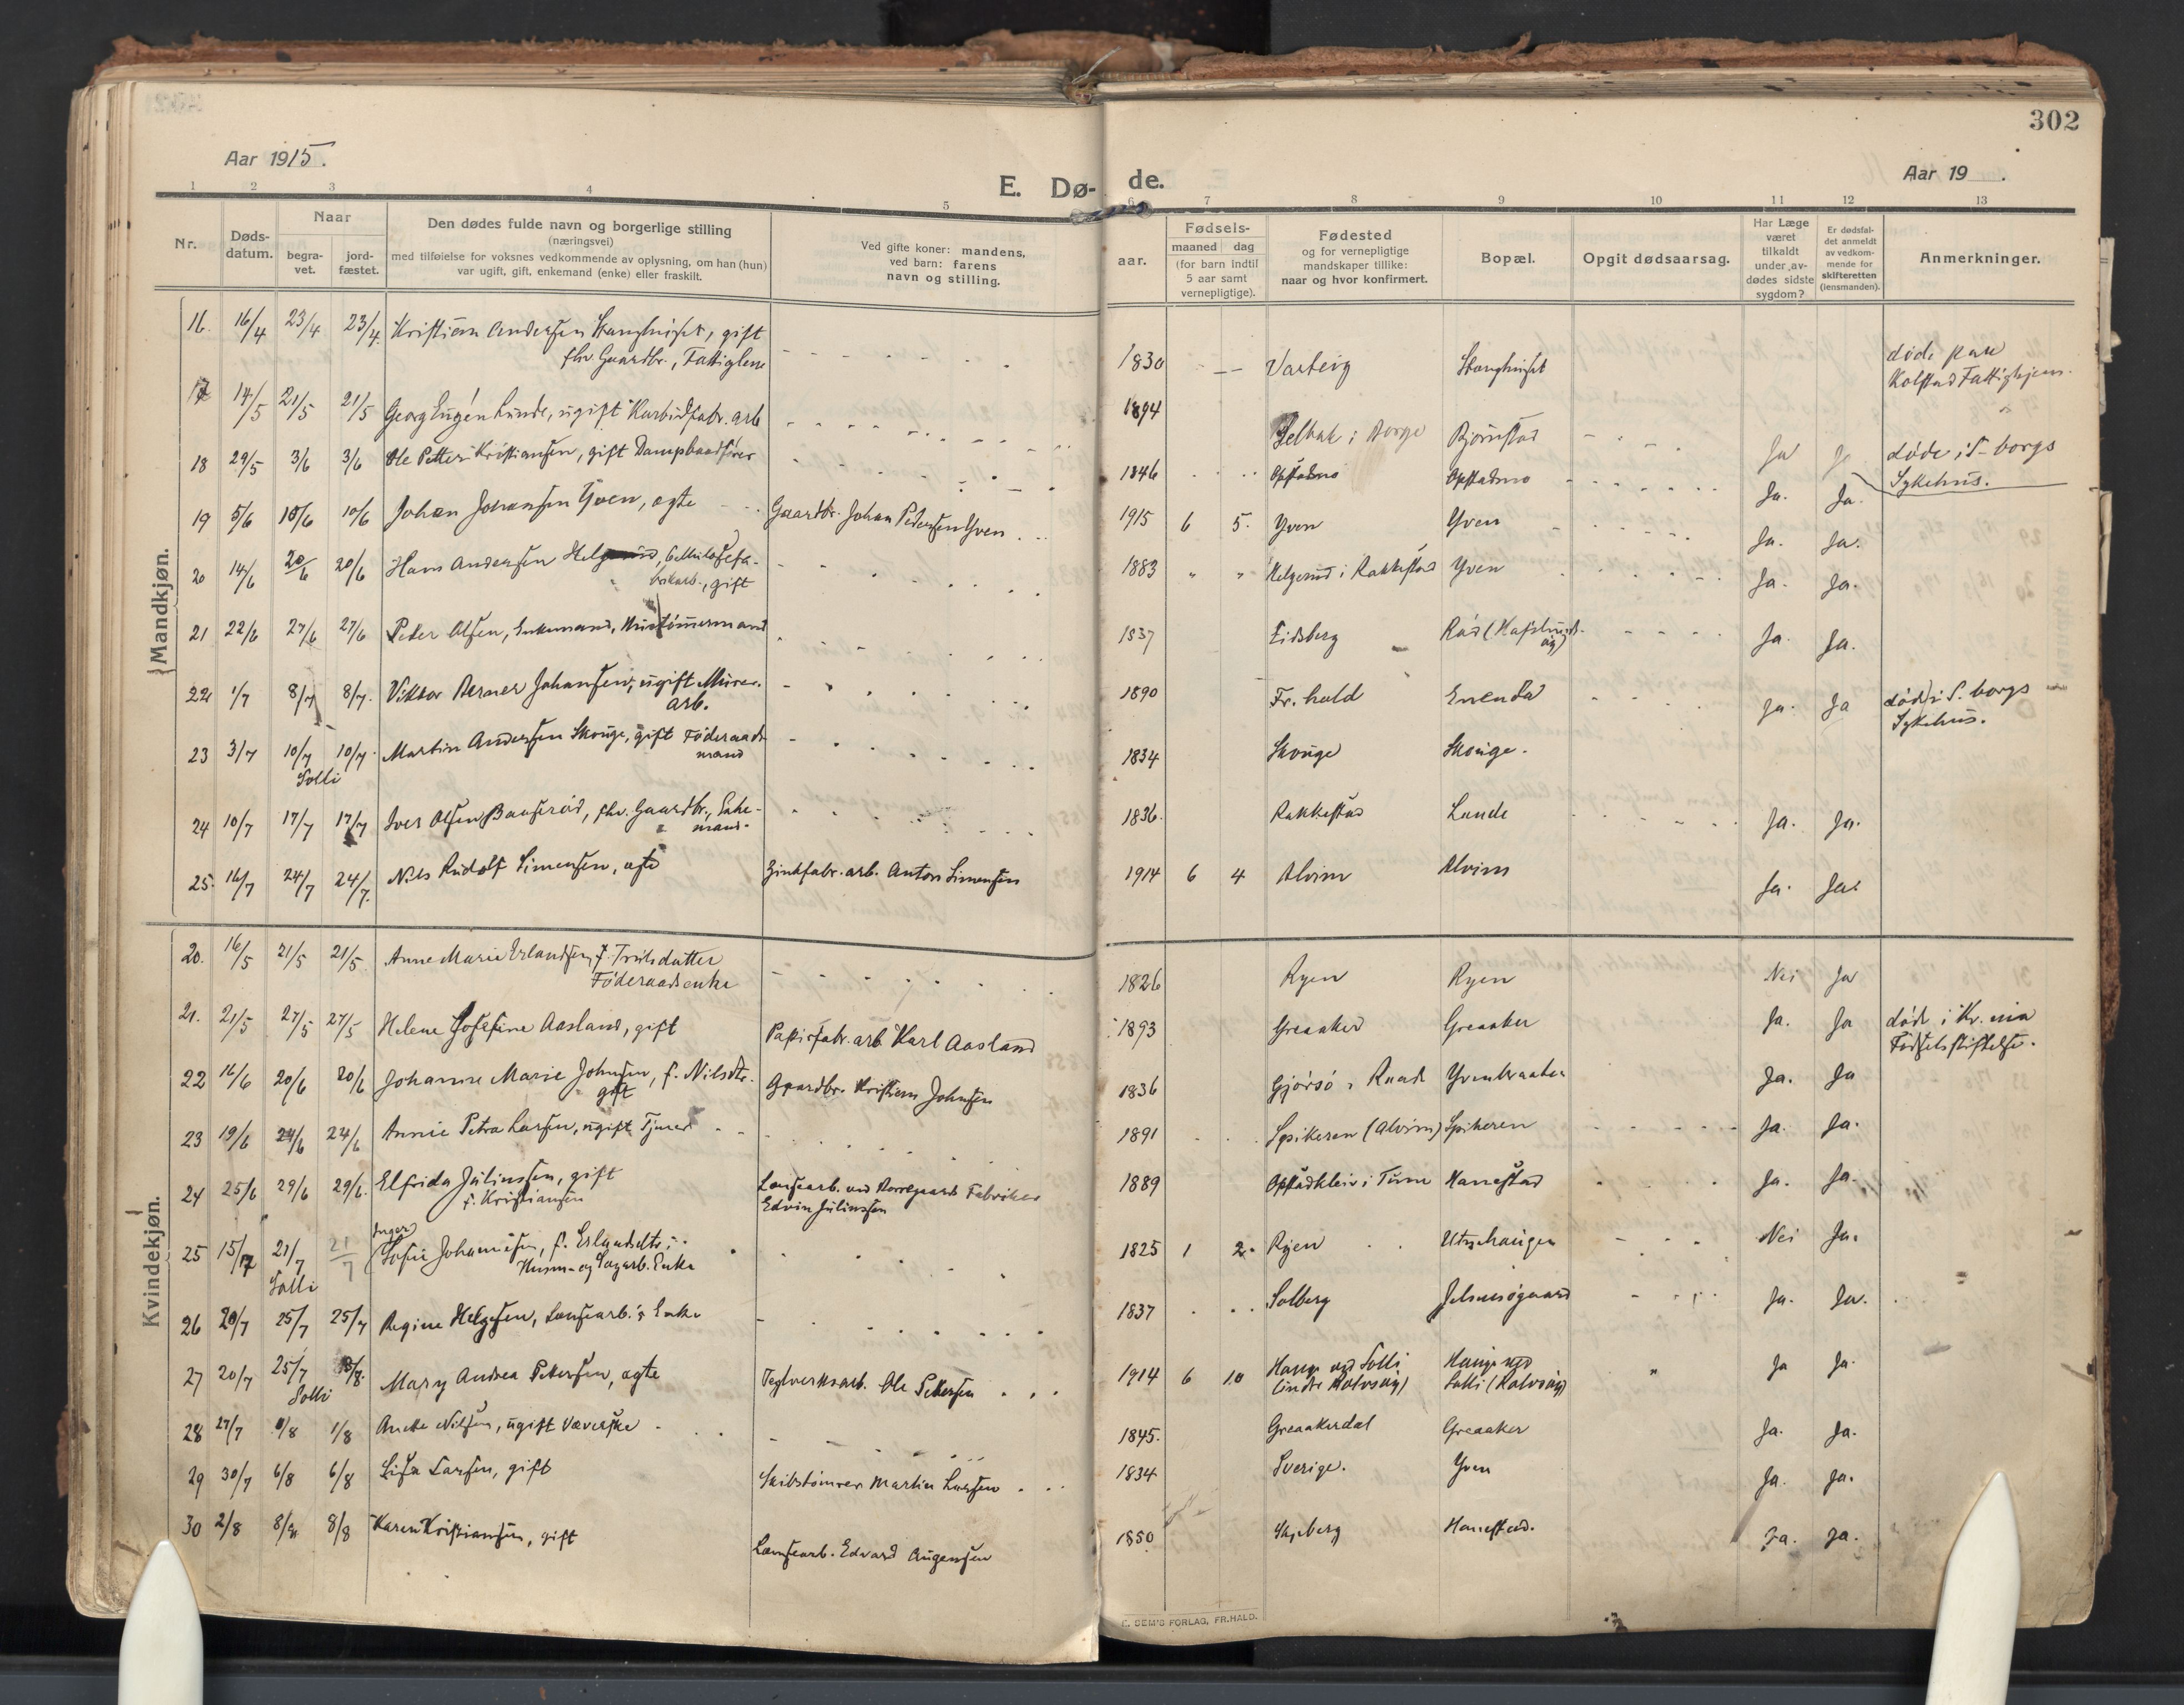 302
Aar 1915.
Aar 19 .
E. Dø- de.
1 2 3 4 5 6 7 8 9 10 11 12 13
Nr.
Døds-
datum.
Naar
begra-
vet.
jord-
fæstet.
Den dødes fulde navn og borgerlige stilling
(næringsvei)
med tilføielse for voksnes vedkommende av oplysning, om han (hun)
var ugift, gift, enkemand (enke) eller fraskilt.
Ved gifte koner: mandens,
ved barn: farens
navn og stilling.
aar.
Fødsels-
maaned dag
(for barn indtil
5 aar samt
vernepligtige).
Fødested
og for vernepligtige
mandskaper tillike:
naar og hvor konfirmert.
Bopæl.
Opgit dødsaarsag.
Har Læge
været
tilkaldt
under av-
dødes sidste
sygdom?
Er dødsfal-
det anmeldt
av vedkom-
mende for
skifteretten
(lensmanden).
Anmerkninger.
Mandkjøn.
16. 16/4 23/4 23/4. Kristian Andersen, gift 1830 Varteig døde paa
fhv. Gaardbr., Fattiglem Kolstad Fattighjem.
17 14/5 21/5 21/5 Georg Eugén Lunde, ugift Karbidfabr. arb 1894 Selbak i Borge Bjørnstad Ja døde i S-borgs
Sykehus.
18 29/5 3/6 3/6 Ole Petter Kristiansen, gift Dampbaadfører 1846 Opstadmo Opstadmo Ja. Ja.
19 5/6 10/6 10/6 Johan Johansen Yven, ægte Gaardbr. Johan Pedersen Yven 1915 6 5. Yven Yven Ja. Ja.
20 14/6 20/6 20/6 Hans Andersen, Cellulosefa-
brikarb., gift 1883 " " Helgerud i Rakkestad Yven Ja. Ja.
21 22/6 27/6 27/6 Peder Olsen, Enkemand, Hustømmermand 1837 Eidsberg Rød (Hafslunds-
øy) Ja. Ja.
22 1/7 8/7 8/7. Viktor Berner Johansen, ugift Murer.
arb. 1890 Fr. hald Enenda Ja. Ja død i S. borgs
Sykehus.
23 3/7 10/7 10/7. Martin Andersen Skouge, gift Føderaads
mand 1834 Skouge Skouge.
Solli
24 10/7 17/7 17/7 Iver Olsen Bauserød, fhv. Gaardbr., Enke-
mand. 1836. Rakkestad Lunde Ja. Ja.
25. 16/7 24/7 24/7. Nils Rudolf Simensen, ægte Zinkfabr. arb. Anton Simensen 1914 6 4 Alvim Alvim Ja. Ja.
Kvindekjøn.
20. 16/5 21/5 21/5. Anne Marie Erlandsen, f. Truilsdatter
Føderaadsenke 1826 Ryen Ryen Nei Ja
21. 21/5 27/5 27/5 Helene Josefine Aasland, gift Papirfabr. arb. Karl Aasland 1893 Greaaker Greaaker Ja. Ja død i Kr.nia
Fødselsstiftelse.
22 16/6 20/6 20/6 Johanne Marie Johnsen, f. Nilsdtr.
gift Gaardbr. Kristian Johnsen 1836 Gjørsø i Raade Yvenbraaten Ja. Ja
23 19/6 24/6 24/6 Annie Petra Larsen, ugift Tjener 1891 Spikeren (Alvim) Spikeren Ja. Ja.
24 25/6 29/6 29/6. Elfrida Julinssen, gift
f. Kristiansen Lænsearb. ved Borregaards Fabriker
Edvin Julinssen 1889 Opstadkleiv i Tune Hanestad Ja. Ja.
25 15/7 21/7 21/7 (Inger)
Sofie Johannesen, f. Erlandsdtr.,
Husm- og Sagarb. Enke 1825 1 2. Ryen Nei Ja.
Solli
26 20/7 25/7 25/7 Regine Helgesen, Lænsearb.'s Enke 1837 Solberg Jelsnesøgaard Ja. Ja.
27 20/7 25/7 3/8. Mary Andrea Pettersen, ægte Teglverksarb. Ole Pettersen 1914 6 10 Hauge ved Solli
(indre Kalvsøy) Hauge ved
Solli (Kalvsøy) " Ja Ja.
Solli
28 27/7 1/8 1/8 Anette Nilsen, ugift Væverske 1845. Greaakerdal Greaaker Ja. Ja.
29 30/7 6/8 6/8 Lisa Larsen, gift Skibstømrer Martin Larsen 1834 Sverige. Yven Ja. Ja.
30 2/8 8/8 8/8 Karen Kristiansen, gift Lænsearb. Edvard Augensen 1850 Skjeberg Hanestad. Ja. Ja.
E. SEM'S FORLAG, FR.HALD.